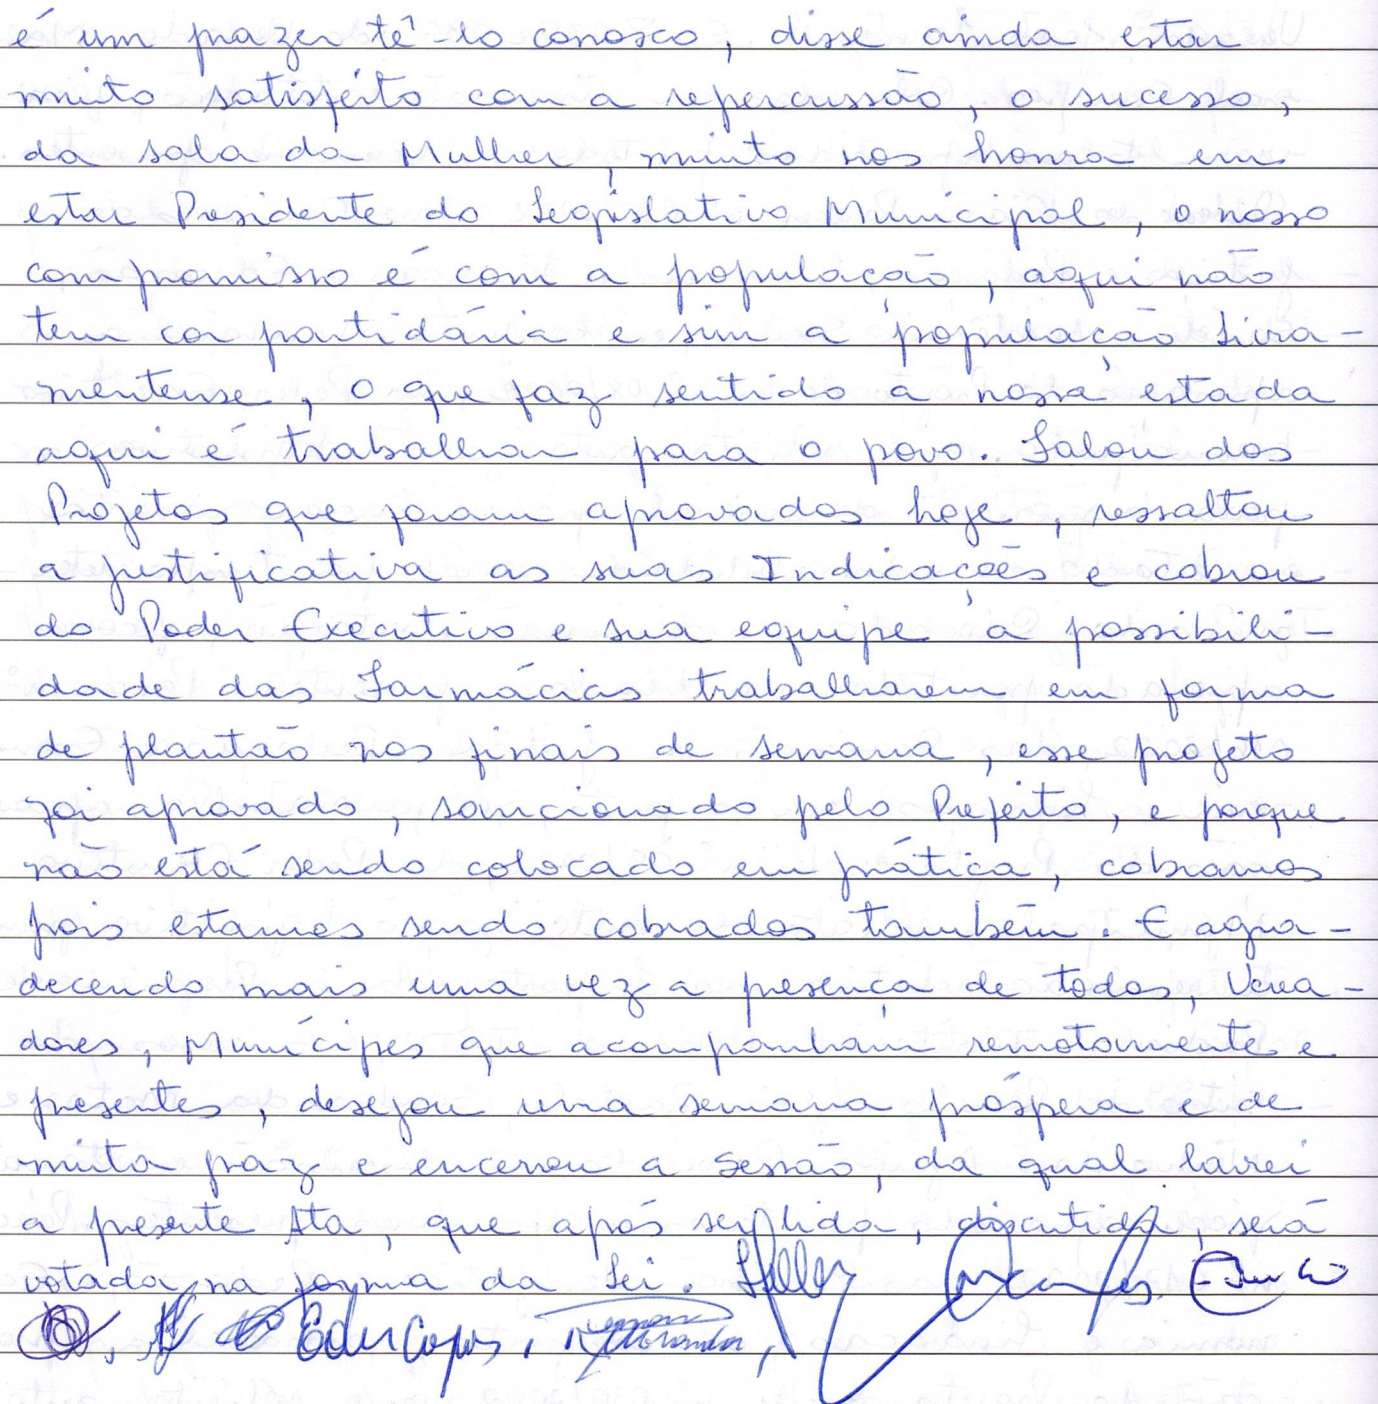 é um prazer tê-lo conosco, disse ainda estar
muito satisfeito com a repercussão, o sucesso,
da sala da Mulher, muito nos honra em
estar Presidente do Legislativo Municipal, o nosso
compromisso é com a população, aqui não
tem cor partidária e sim a população Livra-
mentense, o que faz sentido a nossa estada
aqui é trabalhar para o povo. Falou dos
Projetos que foram aprovados hoje, ressaltou
a justificativa as suas Indicações e cobrou
do Poder Executivo e sua equipe a possibili-
dade das Farmácias trabalharem em forma
de plantão nos finais de semana, esse projeto
foi aprovado, sancionado pelo Prefeito, e porque
não está sendo colocado em prática, cobramos
pois estamos sendo cobrados também. E agra-
decendo mais uma vez a presença de todos, Verea-
dores, Munícipes que acompanham remotamente e
presentes, desejou uma semana próspera e de
muita paz e encerrou a Sessão, da qual lavrei
a presente Ata, que após ser lida, discutida, será
votada na forma da Lei.